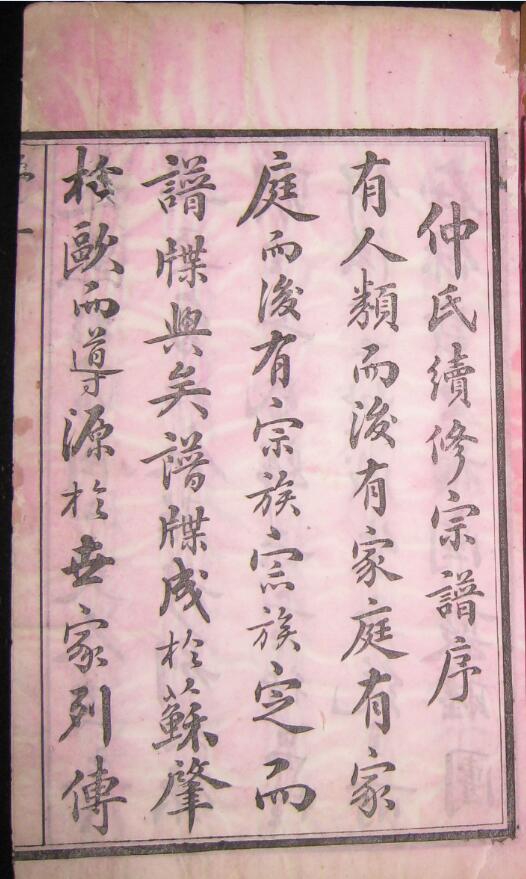 仲氏續修宗譜序
有人類而後有家庭有家
庭而後有宗族宗族定而
譜牒興矣譜牒成於蘇肇
於歐而導源於世家列傳